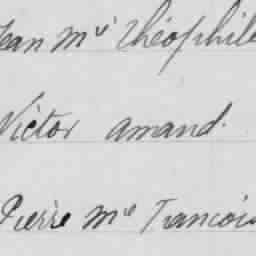 Jean Mie Théophile
Victor Amand.
Pierre Mie Francois